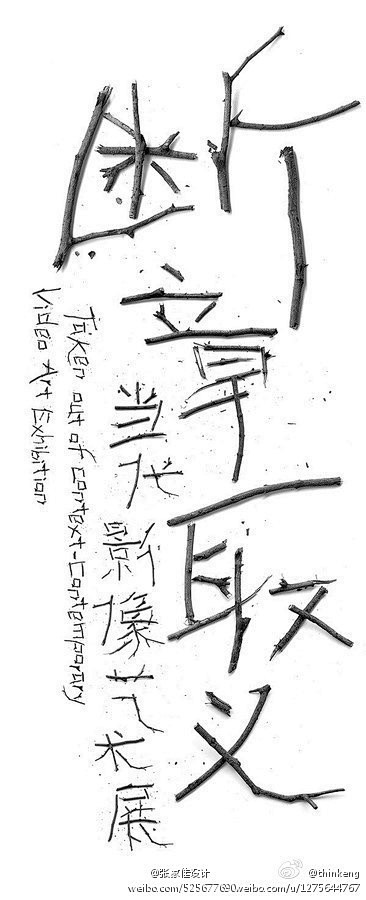 断章取义
当代影像艺术展
Taken out of context-Contemporary
Video Art Exhibition
@张家佳设计
@thinkeng
weibo.com/525677690weibo.com/u/1275644767